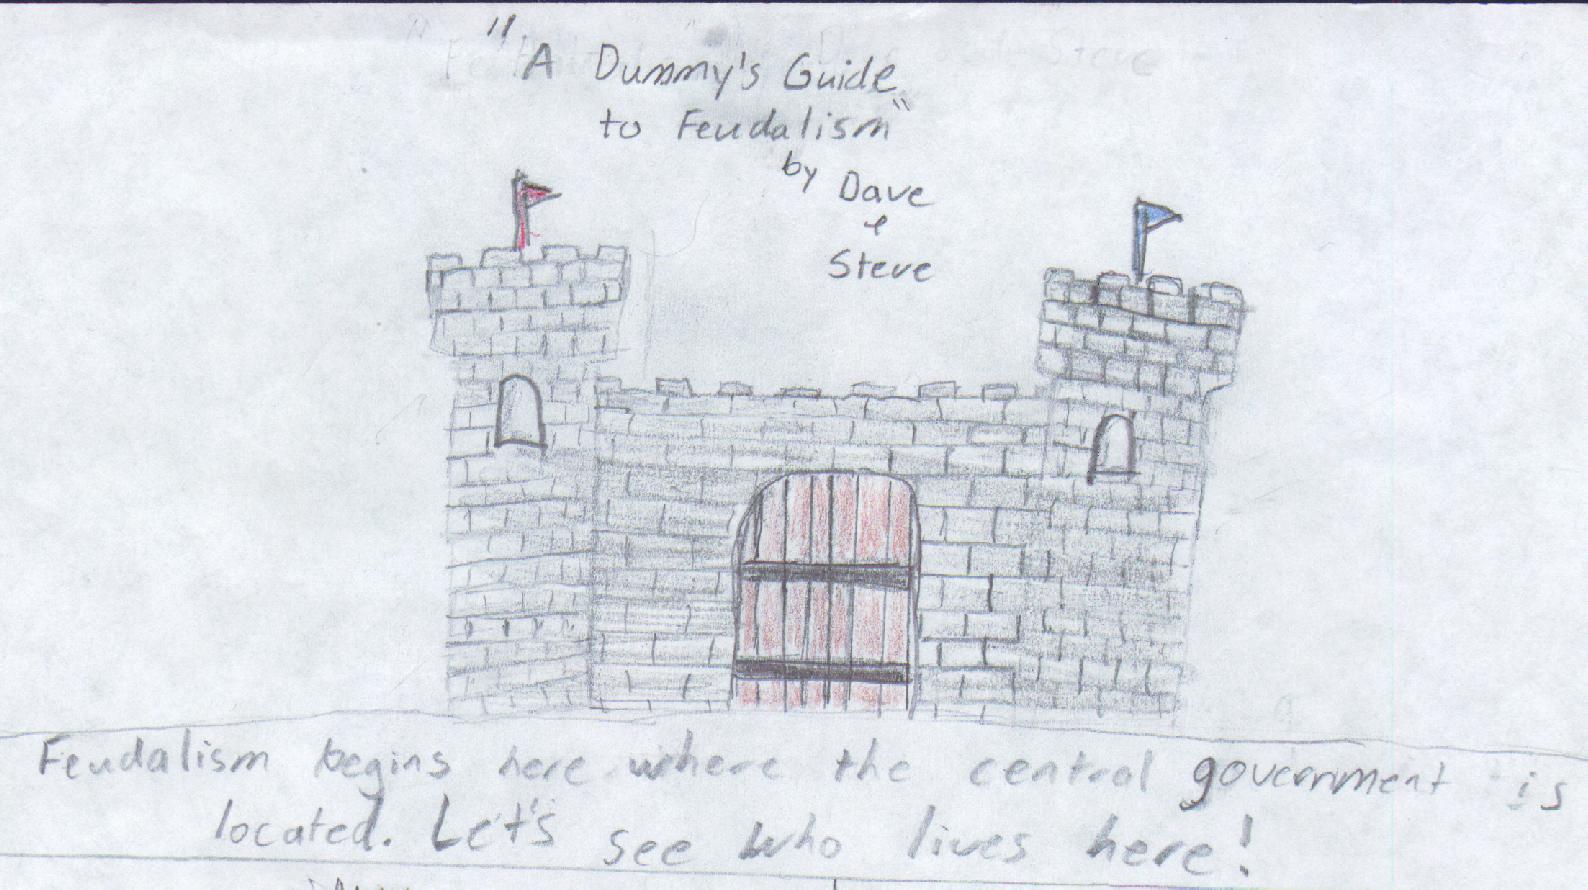 "A Dummy's Guide
to Feudalism"
by Dave
&
Steve
Feudalism begins here where the central government is
located. Let's see who lives here!